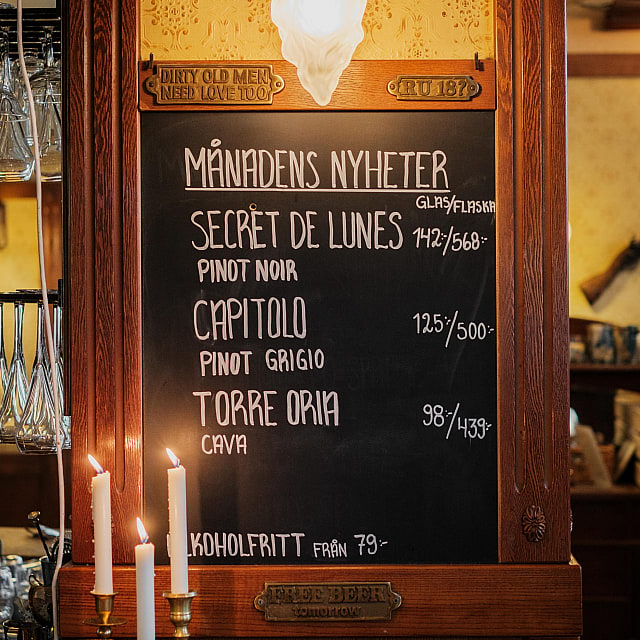 DIRTY OLD MEN
NEED LOVE TOO
RU 18?
MÅNADENS NYHETER
GLAS/FLASKA
SECRET DE LUNES 142:-/568:-
PINOT NOIR
CAPITOLO 125:-/500:-
PINOT GRIGIO
TORRE ORIA 98:-/439:-
CAVA
ALKOHOLFRITT FRÅN 79:-
FREE BEER
tomorrow